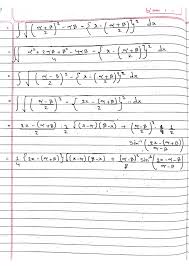 = ∫ √{ ((α+β)/2)² - αβ - {x - (α+β)/2}² } dx
= ∫ √{ (α² + 2αβ + β² - 4αβ)/4 - {x - (α+β)/2}² } dx
= ∫ √{ ((α-β)/2)² - {x - (α+β)/2}² } dx
= ∫ √{ ((α-β)/2)² - {(2x - (α+β))/2}² } dx
= (2x - (α+β))/2 · 1/2 √(x-α)(β-x) + ((α-β)/2)² · 1/2
sin⁻¹ (2x - (α+β))/(α-β)
= 1/4 {2x - (α+β)} √(x-α)(β-x) + (α-β)²/8 sin⁻¹ (2x-α-β)/(α-β)